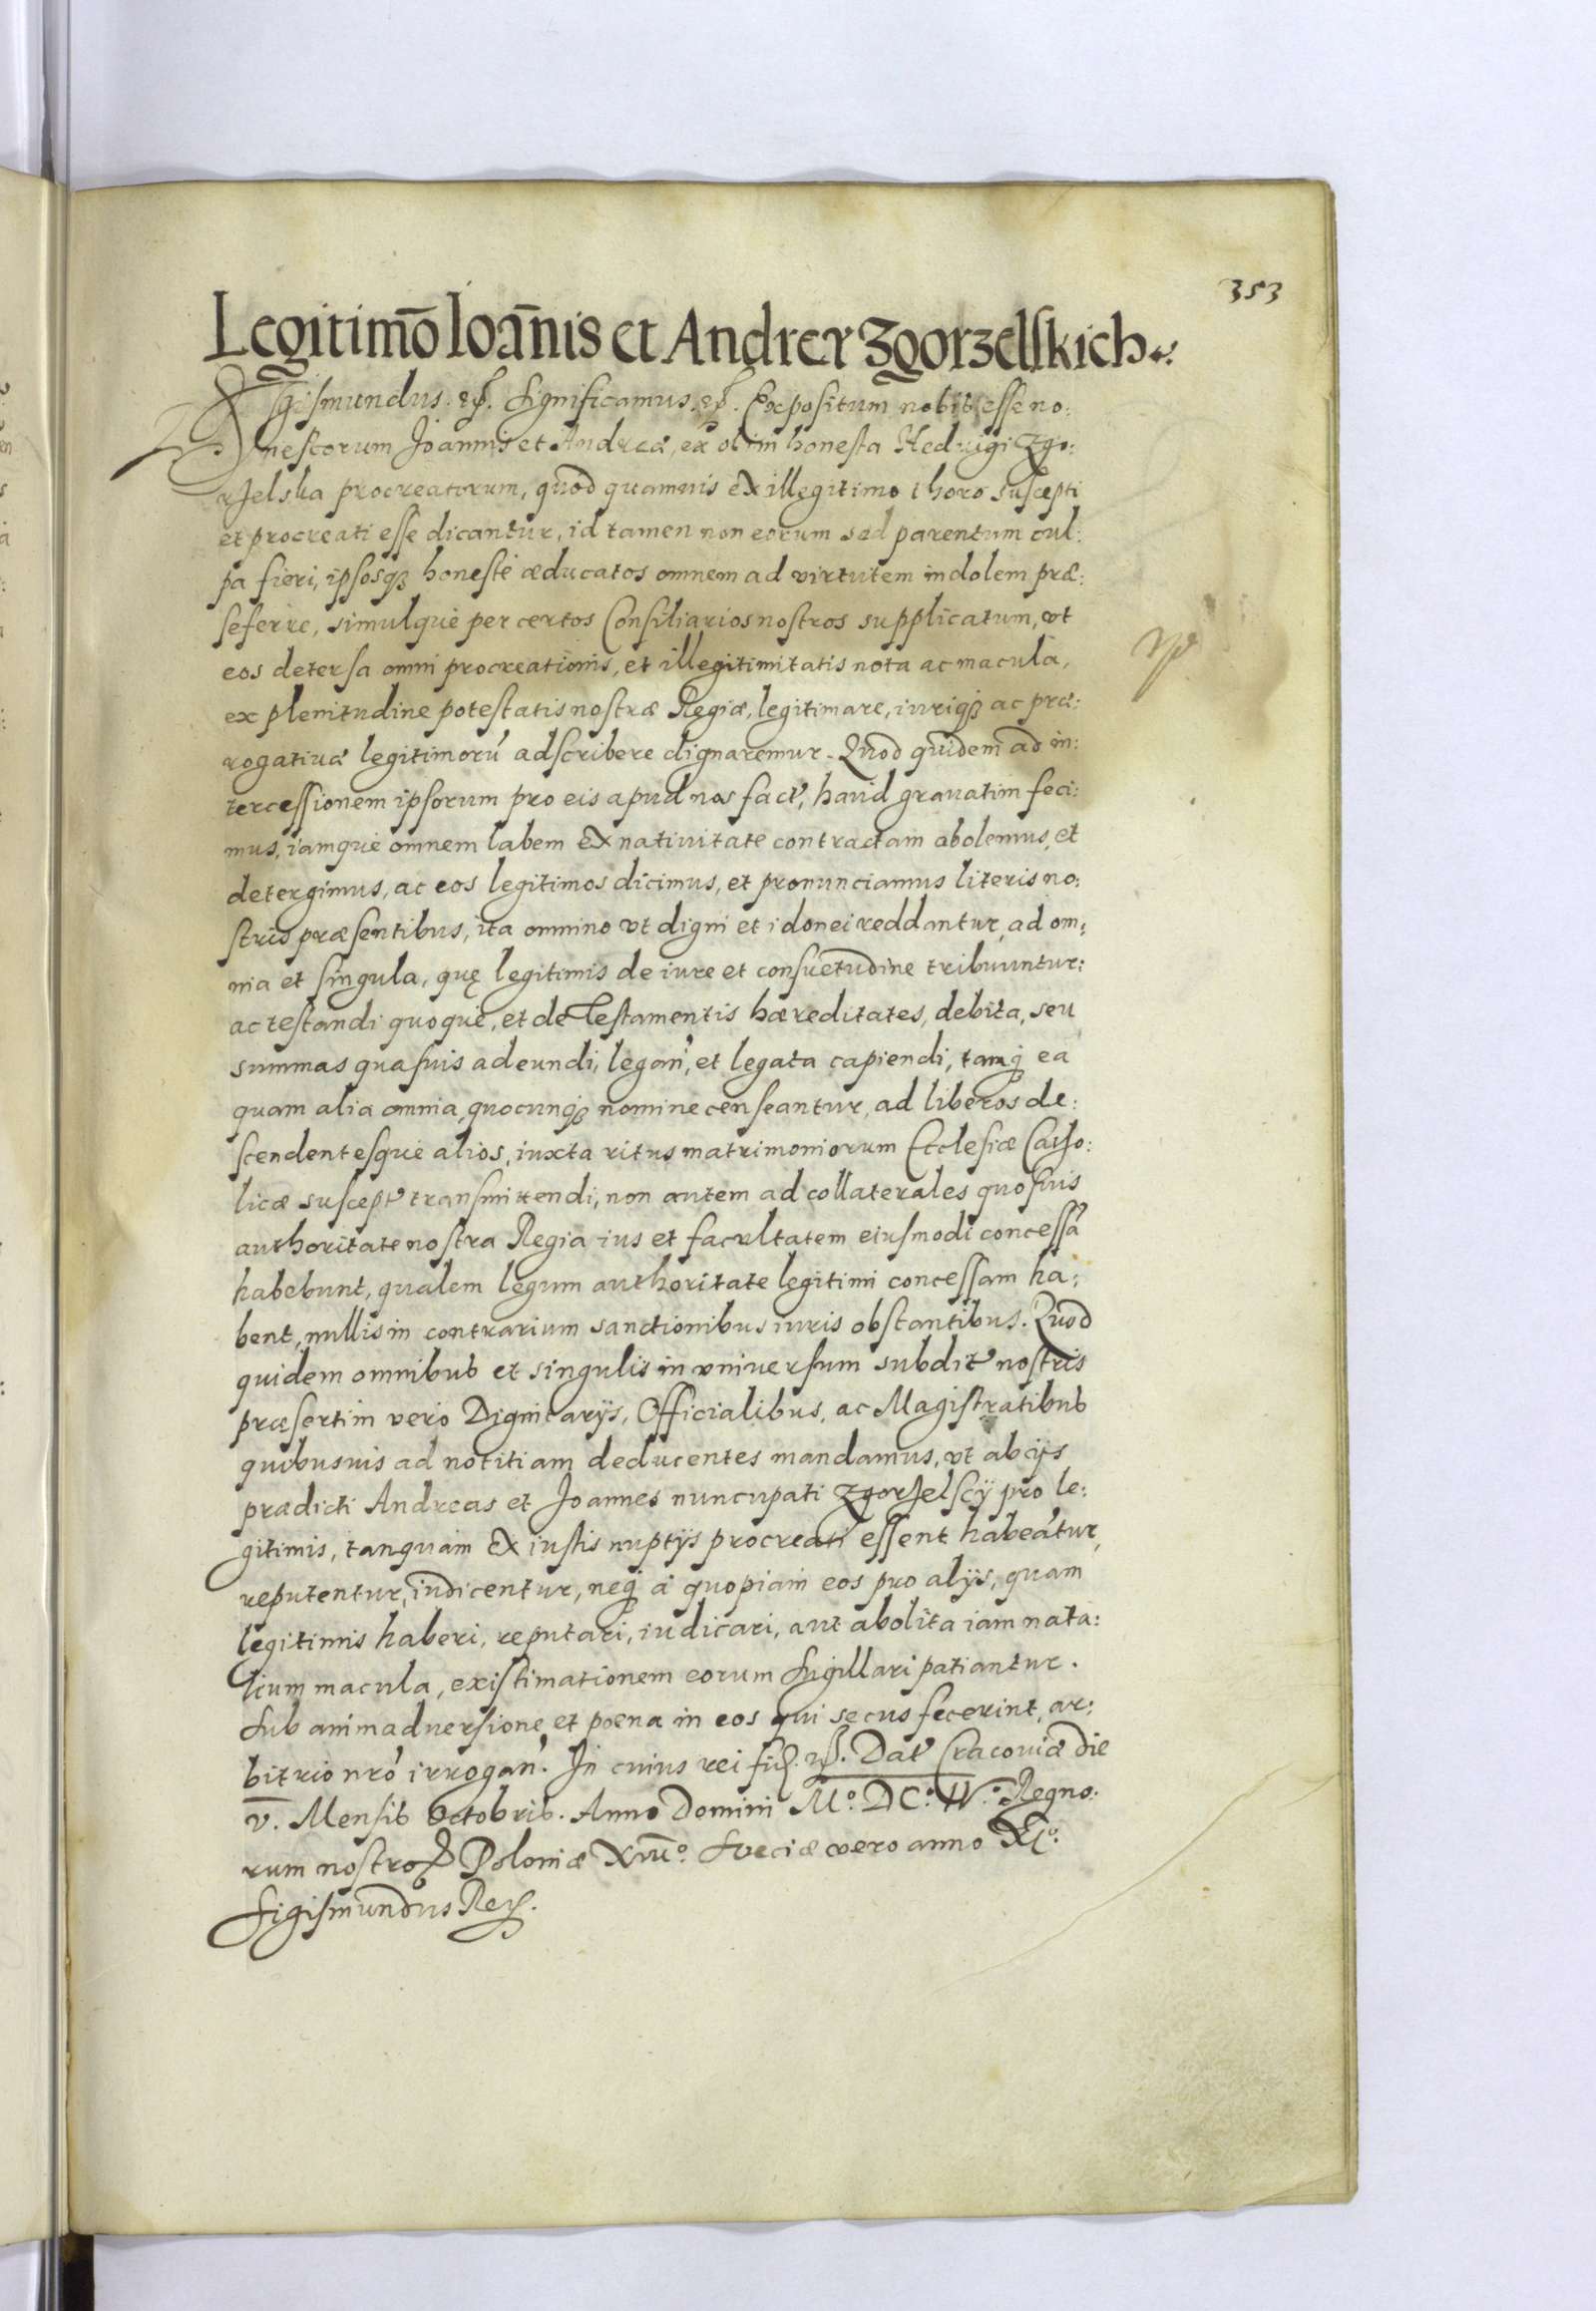 353
Legitimō Ioānis et Andreę Zgorzelskich
Sigismundus. etc. Significamus. etc. Expositum nobis esse no:
nestorum Joannis et Andreæ, ex olim honesta Heduigi Zgo:
rzelska procreatorum, quod quamuis ex illegitimo thoro suscepti
et procreati esse dicantur, id tamen non eorum sed parentum cul:
pa fieri, ipsosq₃ honestè æducatos omnem ad virtutem indolem præ:
seferre, simulquè per certos Consiliarios nostros supplicatum, vt
eos detersa omni procreationis, et illegitimitatis nota ac macula,
ex plenitudine potestatis nostræ Regiæ, legitimare, iuriq₃ ac præ:
rogatiuæ legitimorū adscribere dignaremur. Quod quidem ad in:
tercessionem ipsorum pro eis apud nos fact, haud grauatim feci:
mus, iamquè omnem labem ex natiuitate contractam abolemus, et
detergimus, ac eos legitimos dicimus, et pronunciamus literis no:
stris præsentibus, ita omnino vt digni et idonei reddantur, ad om:
nia et singula, quę legitimis de iure et consuetudine tribuuntur:
ac testandi quoquè, et de Testamentis hæreditates, debita, seu
summas quasuis adeundi, legan̄, et legata capiendi, tamq₃ ea
quam alia omnia, quocunq₃ nomine censeantur, ad liberos de:
scendentesquè alios, iuxta ritus matrimoniorum Ecclesiæ Catho:
licæ suscept transmittendi, non autem ad collaterales quosuis
authoritate nostra Regia ius et facultatem eiusmodi concessā
habebunt, qualem legum authoritate legitimi concessam ha:
bent, nullis in contrarium sanctionibus iuris obstantibus. Quod
quidem omnibus et singulis in vniuersum subdit nostris
præsertim vero Dignitarijs, Officialibus, ac Magistratibus
quibusuis ad notitiam deducentes mandamus, vt ab ijs
prædicti Andreas et Joannes nuncupati Zgorzelscÿ pro le:
gitimis, tanquam ex iustis nuptijs procreati essent habeātur,
reputentur, iudicentur, neq₃ à quopiam eos pro alijs, quam
legitimis haberi, reputari, iudicari, aut abolita iam nata:
lium macula, existimationem eorum sugillari patiantur.
Sub animaduersione et poena in eos qui secus fecerint, ar:
bitrio nrō irrogan̄. In cuius rei fid. etc. Dat Cracouiæ die
v. Mensis Octobris. Anno Domini Mº. DCº. IVº. Regno:
rum nostroꝝ Poloniæ XVIIº. Sueciæ vero anno XIº.
Sigismundus Rex.